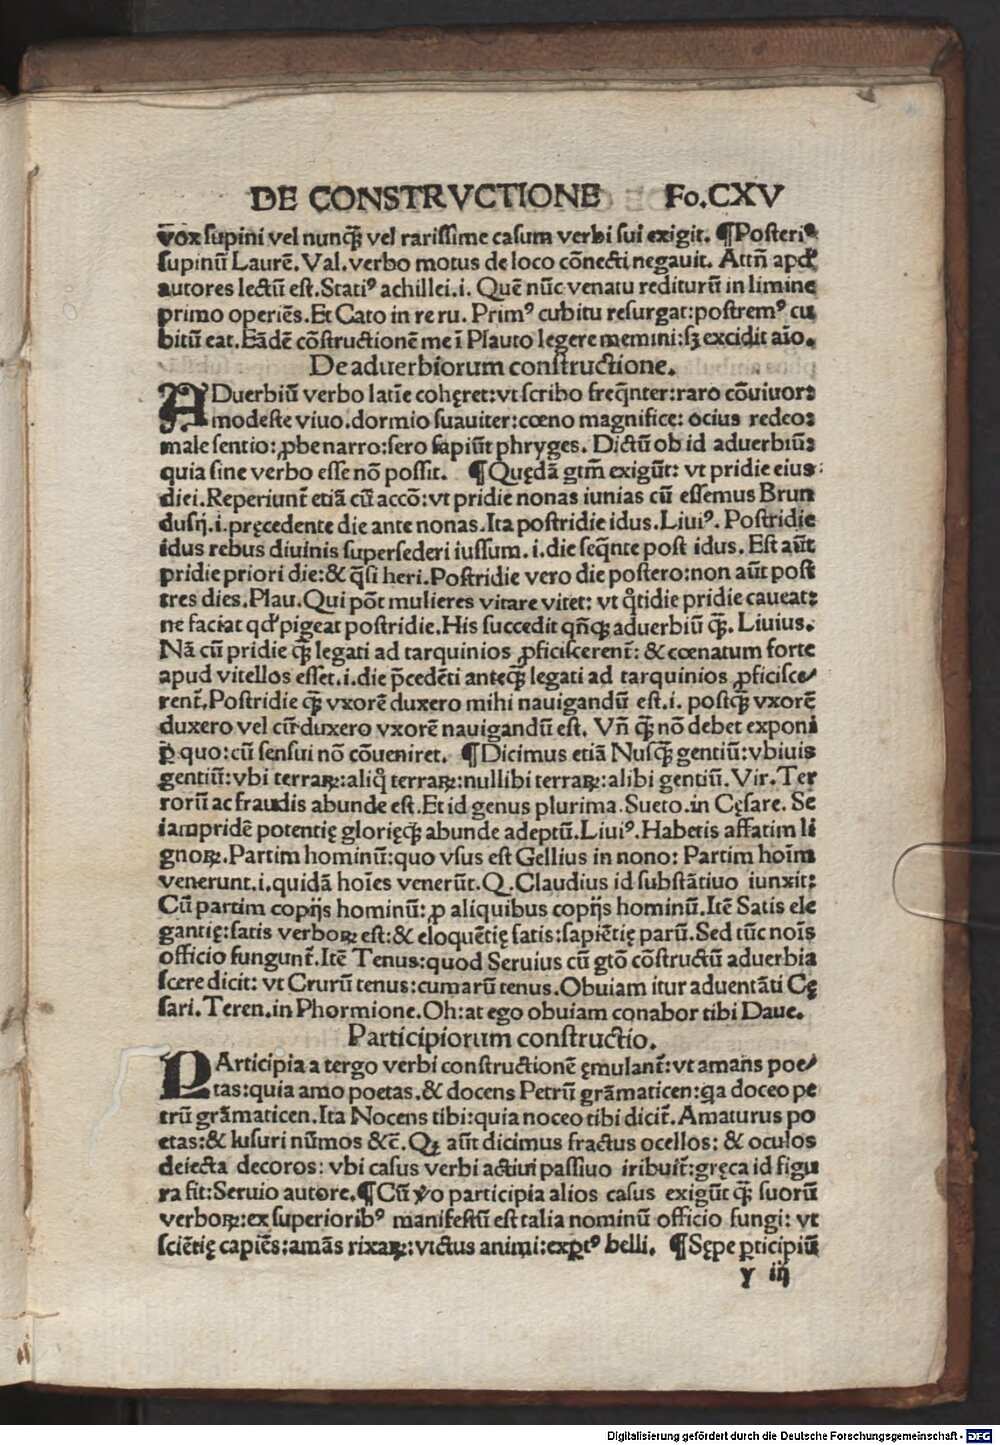 DE CONSTRVCTIONE Fo.CXV
vox supini vel nunq̃ vel rarissime casum verbi sui exigit. ¶Posteriꝰ
supinũ Laurẽ. Val. verbo motus de loco cõnecti negauit. Attñ apđ
autores lectũ est. Statiꝰ achillei.i. Quẽ nũc venatu rediturũ in limine
primo operiẽs. Et Cato in re ru. Primꝰ cubitu resurgat: postremꝰ cu
bitũ eat. Eãdẽ cõstructionẽ me ĩ Plauto legere memini: sꝫ excidit aĩo.
De aduerbiorum constructione.
ADuerbiũ verbo latĩe cohęret: vt scribo freq̃nter: raro cõuiuor:
modeste viuo. dormio suauiter: cœno magnifice: ocius redeo:
male sentio: ꝓbe narro: sero sapiũt phryges. Dictũ ob id aduerbiũ:
quia sine verbo esse nõ possit. ¶Quędã gtm̃ exigũt: vt pridie eius
diei. Reperiunt̃ etiã cũ accõ: vt pridie nonas iunias cũ essemus Brun
dusij.i. pręcedente die ante nonas. Ita postridie idus. Liuiꝰ. Postridie
idus rebus diuinis supersederi iussum.i. die seq̃nte post idus. Est aũt
pridie priori die: & q̃si heri. Postridie vero die postero: non aũt post
tres dies. Plau. Qui põt mulieres vitare vitet: vt q̊tidie pridie caueat:
ne faciat qđ pigeat postridie. His succedit qñqꝫ aduerbiũ q̃. Liuius.
Nã cũ pridie q̃ legati ad tarquinios ꝓficiscerent̃: & cœnatum forte
apud vitellos esset.i. die p̃cedẽti anteq̃ legati ad tarquinios ꝓficisce/
rent̃. Postridie q̃ vxorẽ duxero mihi nauigandũ est.i. postq̃ vxorẽ
duxero vel cũ duxero vxorẽ nauigandũ est. Vñ q̃ nõ debet exponi
ꝑ quo: cũ sensui nõ cõueniret. ¶Dicimus etiã Nusq̃ gentiũ: vbiuis
gentiũ: vbi terraꝝ: aliq̊ terraꝝ: nullibi terraꝝ: alibi gentiũ. Vir. Ter
rorũ ac fraudis abunde est. Et id genus plurima. Sueto. in Cęsare. Se
iampridẽ potentię glorięqꝫ abunde adeptũ. Liuiꝰ. Habetis affatim li
gnoꝝ. Partim hominũ: quo vsus est Gellius in nono: Partim hoĩm
venerunt.i. quidã hoĩes venerũt. Q. Claudius id substãtiuo iunxit:
Cũ partim copijs hominũ: ꝓ aliquibus copijs hominũ. Itẽ Satis ele
gantię: satis verboꝝ est: & eloquẽtię satis: sapiẽtię parũ. Sed tũc noĩs
officio fungunt̃. Itẽ Tenus: quod Seruius cũ gtõ cõstructũ aduerbia
scere dicit: vt Crurũ tenus: cumarũ tenus. Obuiam itur aduentãti Cę
sari. Teren. in Phormione. Oh: at ego obuiam conabor tibi Daue.
Participiorum constructio.
PArticipia a tergo verbi constructionẽ ęmulant̃: vt amans poe/
tas: quia amo poetas. & docens Petrũ grãmaticen: q̃a doceo pe
trũ grãmaticen. Ita Nocens tibi: quia noceo tibi dicit̃. Amaturus po
etas: & lusuri nũmos &c̃. Qꝫ aũt dicimus fractus ocellos: & oculos
deiecta decoros: vbi casus verbi actiui passiuo tribuit̃: gręca id figu
ra fit: Seruio autore. ¶Cũ ỹo participia alios casus exigũt q̃ suorũ
verboꝝ: ex superioribꝰ manifestũ est talia nominũ officio fungi: vt
sciẽtię capiẽs: amãs rixaꝝ: victus animi: exꝑtꝰ belli. ¶Sępe ꝑticipiũ
y iij
Digitalisierung gefördert durch die Deutsche Forschungsgemeinschaft - DFG